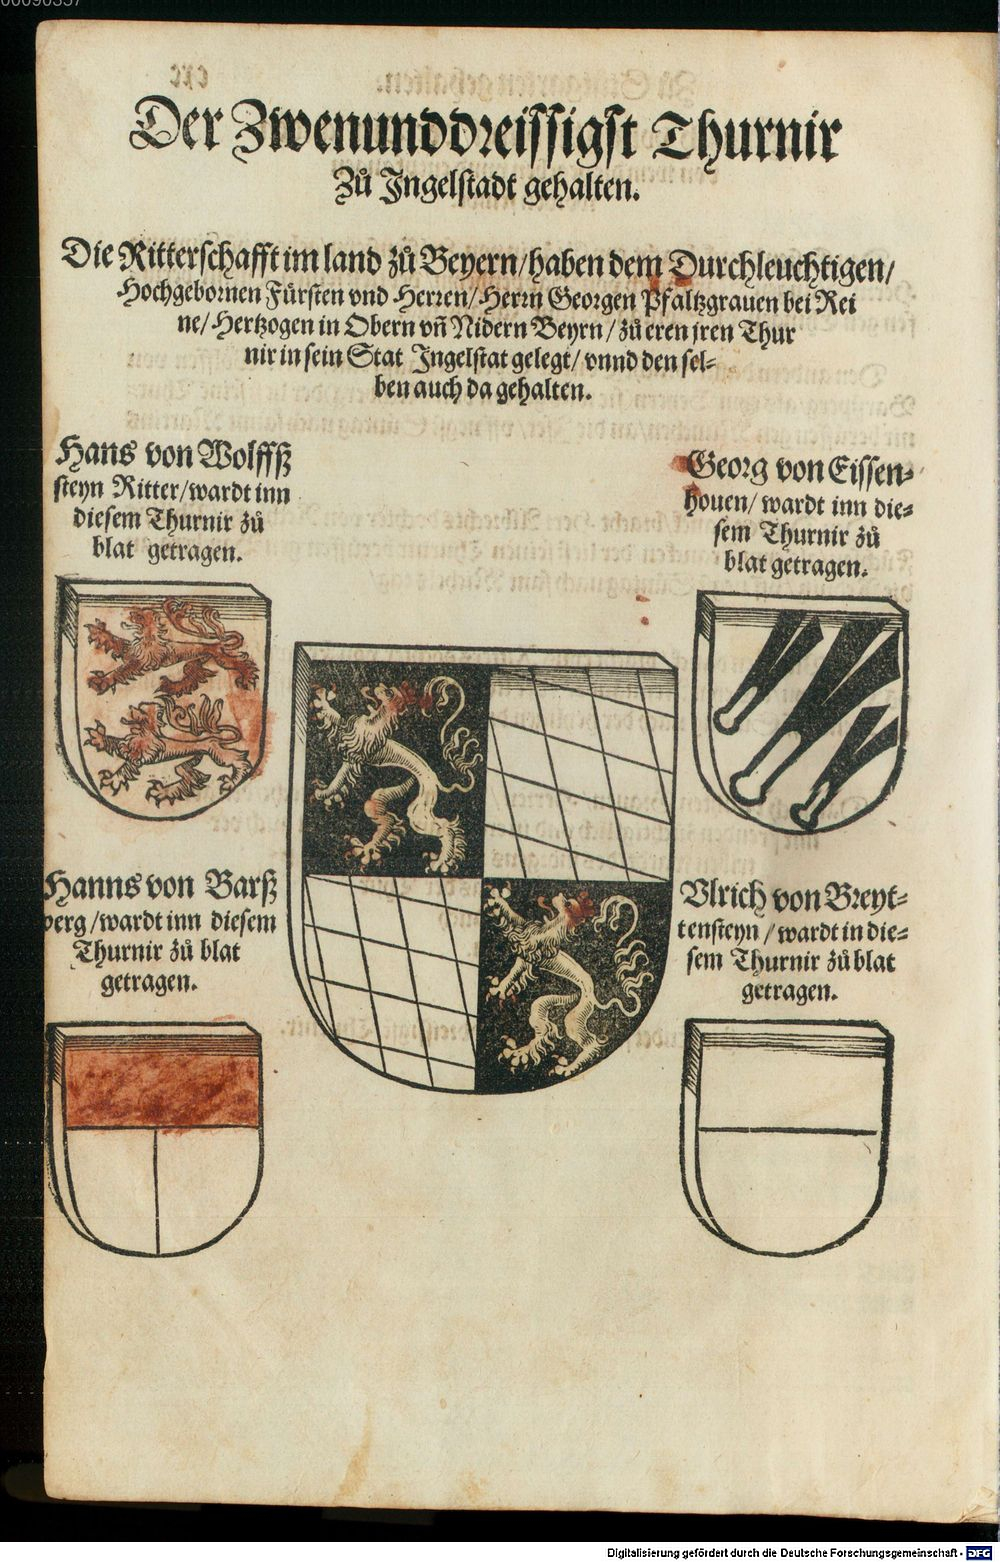 00090357
Der Zwenunddreissigst Thurnir
Zů Ingelstadt gehalten.
Die Ritterschafft im land zů Beyern/haben dem Durchleuchtigen/
Hochgebornen Fürsten vnd Herren/Herrn Georgen Pfaltzgrauen bei Rei
ne/Hertzogen in Obern vñ Nidern Beyrn/zů eren jren Thur
nir in sein Stat Ingelstat gelegt/vnnd den sel⸗
ben auch da gehalten.
Hans von Wolffß
steyn Ritter/wardt inn
diesem Thurnir zů
blat getragen.
Georg von Eissen⸗
houen/wardt inn die⸗
sem Thurnir zů
blat getragen.
Hanns von Barß
berg/wardt inn diesem
Thurnir zů blat
getragen.
Vlrich von Breyt⸗
tensteyn/wardt in die⸗
sem Thurnir zů blat
getragen.
Digitalisierung gefördert durch die Deutsche Forschungsgemeinschaft - DFG